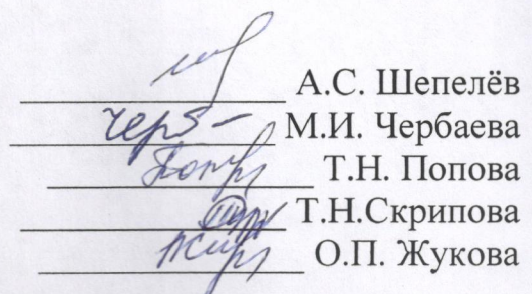 А.С. Шепелёв
М.И. Чербаева
Т.Н. Попова
Т.Н.Скрипова
О.П. Жукова